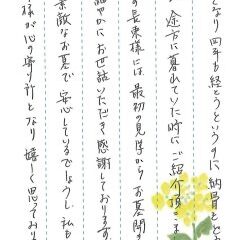 となり四年も経とうというのに納骨もどう
途方に暮れていた時にご紹介頂き
の長東様には、最初の見学からお墓開き
細やかにお世話いただき感謝しております。
素敵なお墓で安心しているでしょうし、私も
様が心の寄り所となり嬉しく思っており